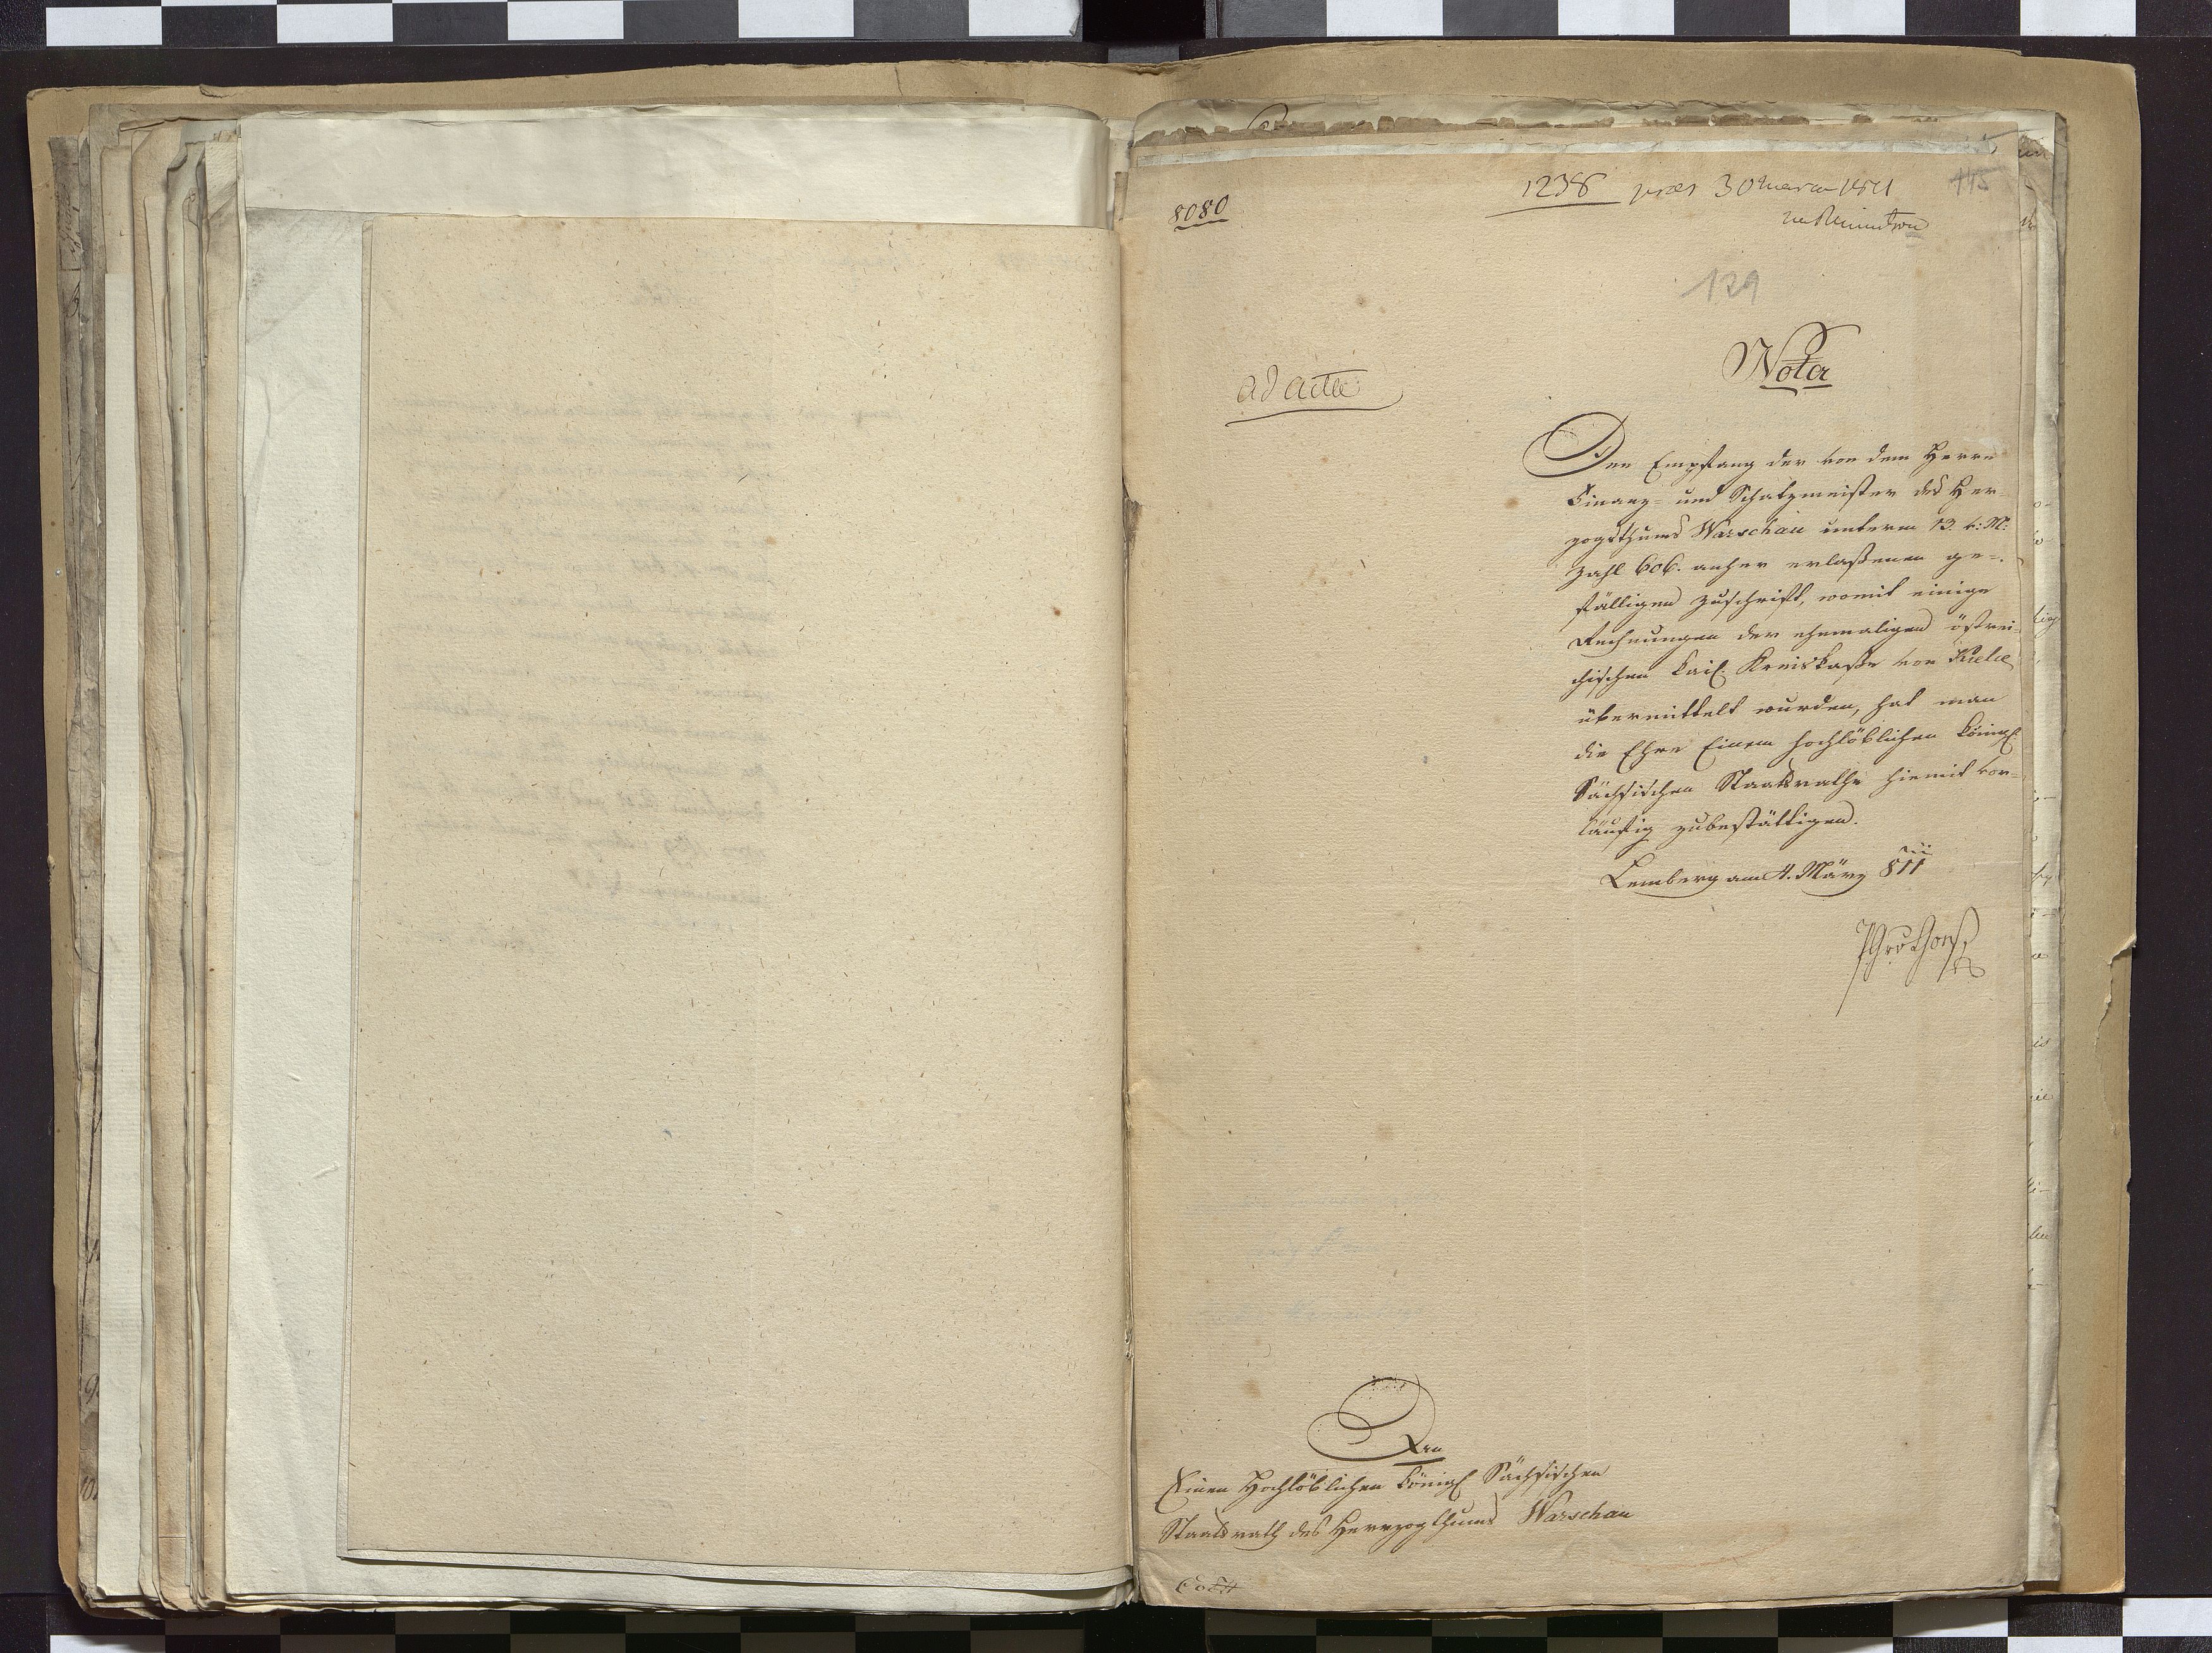 8080
1238 præs 30 Marca 1811
115
129
ad acta
Nota
Den Empfang der von dem Herrn
Finanz= und Schatzmeister des Her-
zogsthums Warschau unterm 13. v: M:
Zahl 606. anher erlaßenen ge=
fälligen Zuschrift, womit einige
Rechnungen der ehemaligen östrei-
chischen kais. Kreiskasse von Kielce
übermittelt wurden, hat man
die Ehre Einem hochlöblichen königl
Sächsischen Staatsrathe hiemit vor-
läufig zubestättigen.
Lemberg am 4. März 811
An
Einen Hochlöblichen königl Sächsischen
Staatsrath des Herrzogthums Warschau